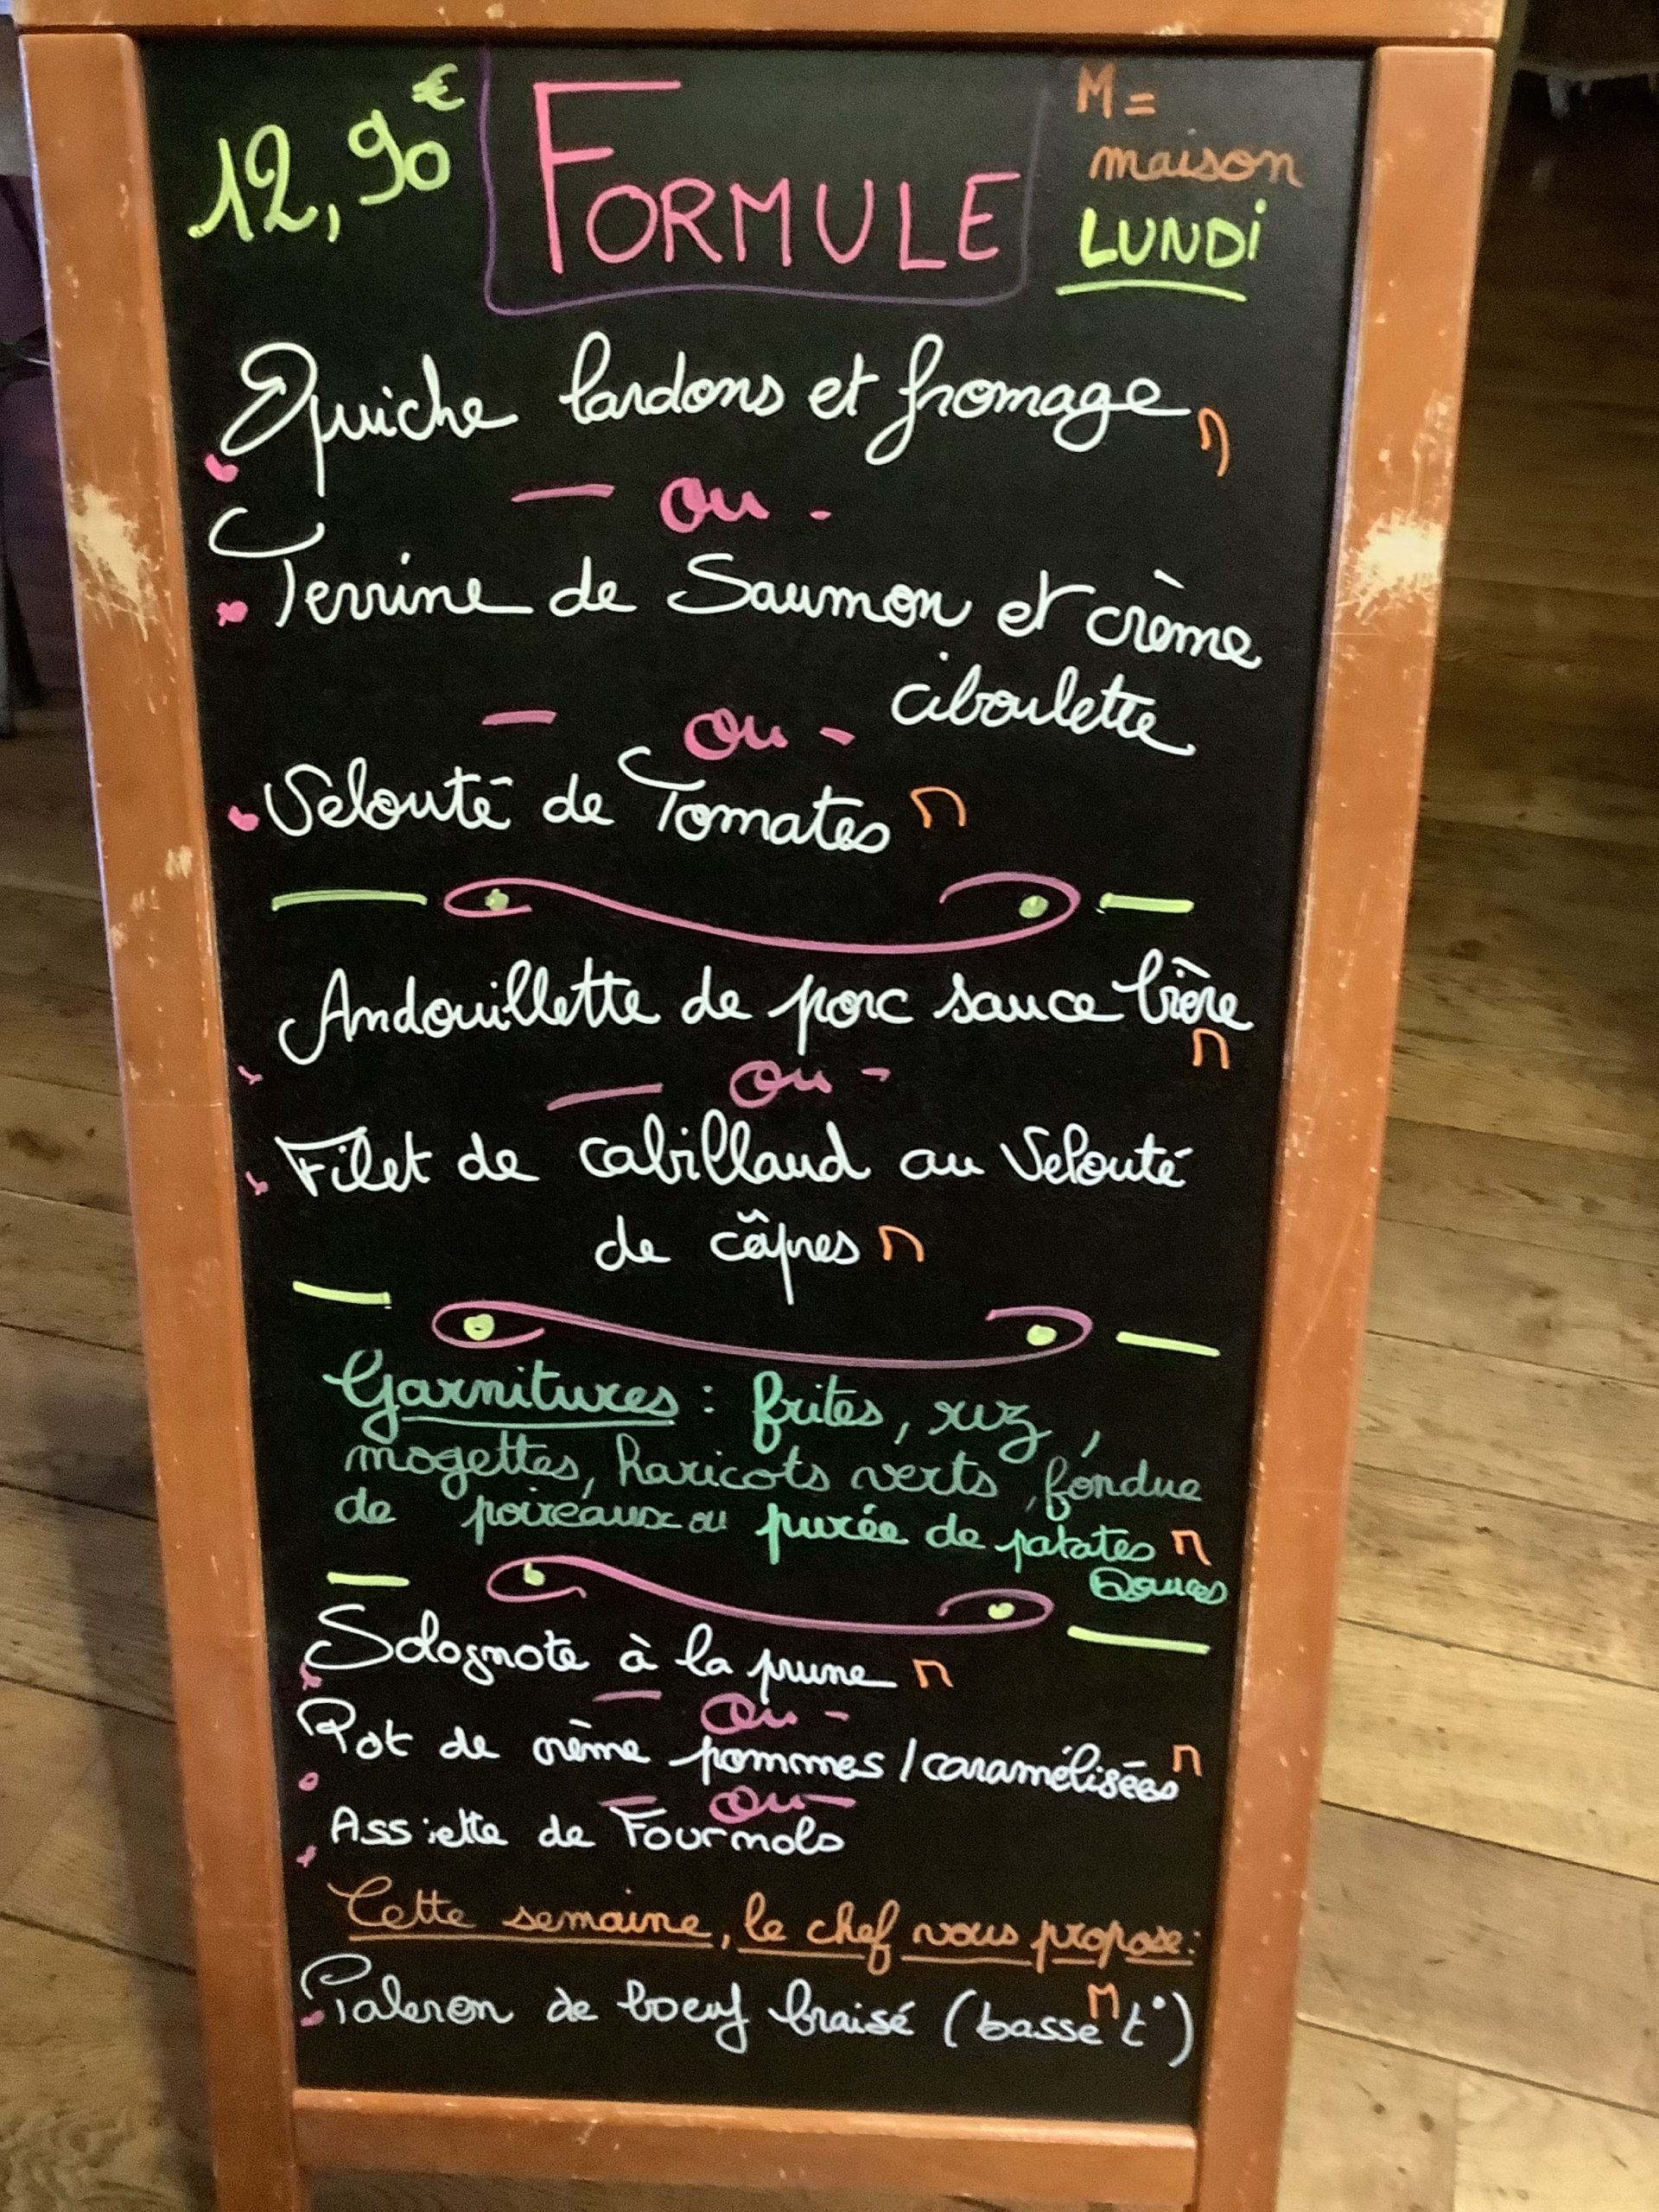 12,90€ FORMULE M = maison
LUNDI
Quiche lardons et fromage M
— ou -
Terrine de Saumon et crème
ciboulette
— ou -
Velouté de Tomates M
Andouillette de porc sauce bière
M
— ou -
Filet de cabillaud au Velouté
de câpres M
Garnitures : frites, riz,
mogettes, haricots verts, fondue
de poireaux ou purée de patates M
Douces
Solognote à la prune M
— ou -
Pot de crème pommes / caramélisées M
— ou —
Assiette de Fourmols
Cette semaine, le chef vous propose :
Paleron de boeuf braisé (basse t°) M